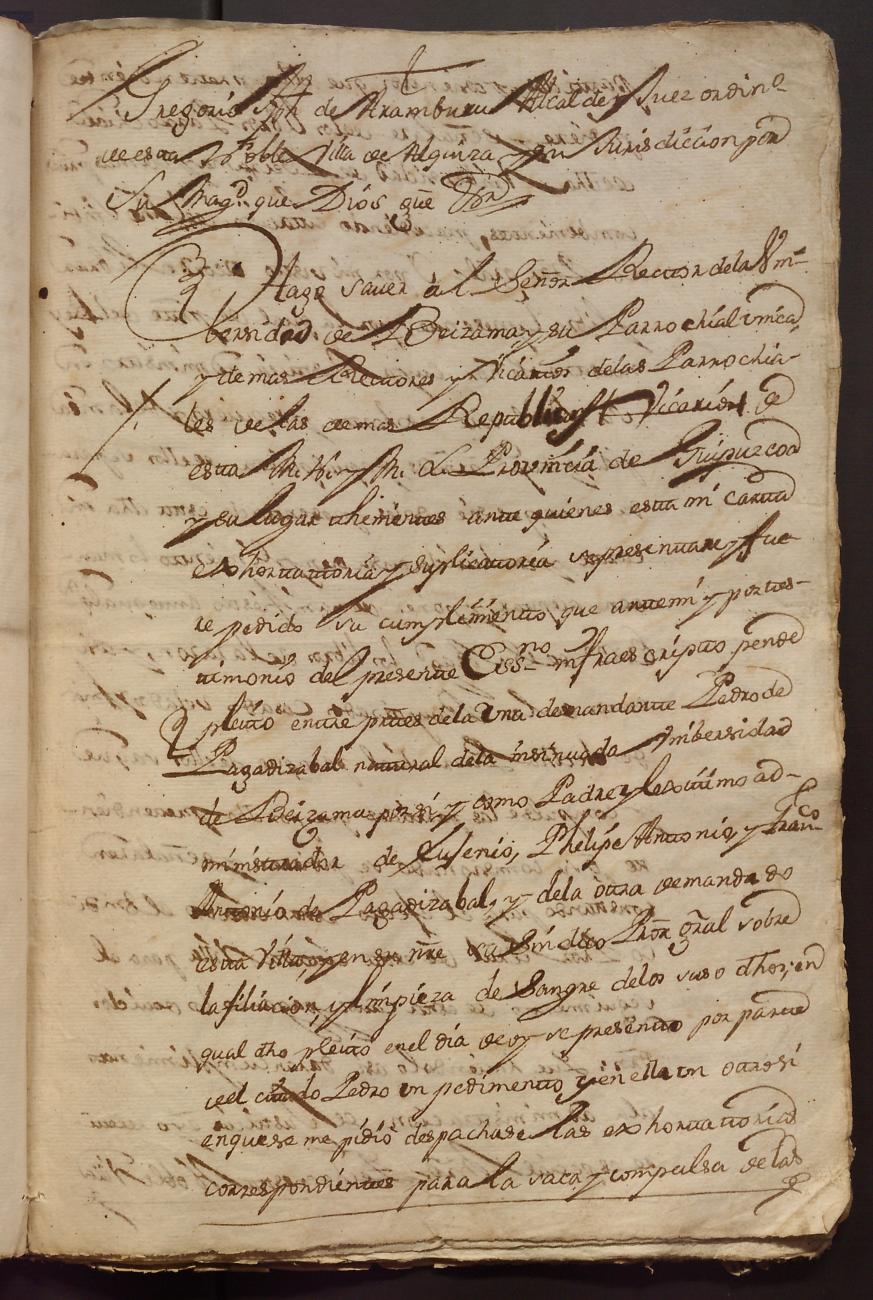 Gregorio Jph de Aramburu Alcalde y Juez ordino
de esta Noble Villa de Alquiza y su Jurisdicion por
Su Magd. que Dios gue &a
Hago saver á el Señor Rector dela Vni-
bersidad de Beizama y su Parrochial unica
y demas Rectores y Vicarios delas Parrochia-
les de las demas Republicas Vicarios de
esta M. N. y M. L. Provincia de Guipuzcoa
y su lugar thenientes ante quienes esta mi carta
exhortatoria y suplicatoria se presentare y fue-
re pedido su cumplimiento que ante mi y por tes-
timonio del presente Essno infraescripto pende
pleito entre partes dela una demandante Pedro de
Pagadizabal natural dela insinuada Vnibersidad
de Beizama por si y como Padre y lexitimo ad-
ministrador de Eusenio, Phelipe Antonio, y Franco
Antonio de Pagadizabal, y dela otra demandado
esta Villa, y en su nre su Sindico Pror gral sobre
la filiacion, y limpieza de Sangre delos suso dhos, en
qual dho pleito en el dia de oy se presento por parte
de el citado Pedro un pedimento y en ella un otro si
en que se me pidió despachase las exhortatorias
correspondientes para la saca y compulsa de las